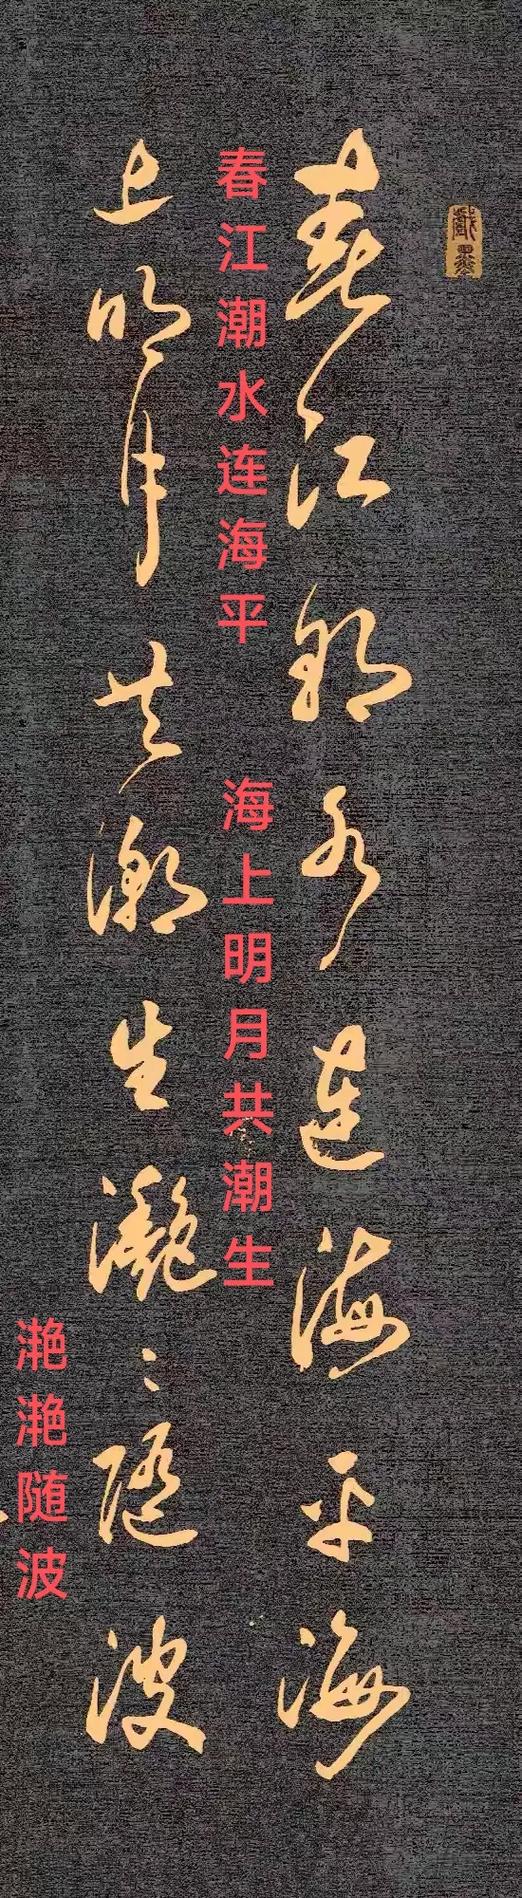 春江潮水连海平海
上明月共潮生滟〻随波
春江潮水连海平
海上明月共潮生
滟滟随波
戲墨